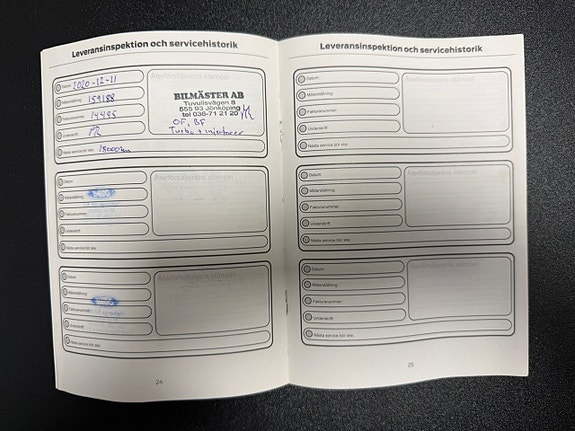 Leveransinspektion och servicehistorik
Datum 2020-12-11
Återförsäljarens stämpel
Mätarställning 159188
BILMÄSTER AB
Fakturanummer 14495
Tuvullsvägen 8
553 93 Jönköping
tel 036-71 21 20
Underskrift
OF, BF
Turbo + injectorer
Nästa service bör ske:
Datum
Återförsäljarens stämpel
Mätarställning
Fakturanummer
Underskrift
Nästa service bör ske:
Datum
Återförsäljarens stämpel
Mätarställning
Fakturanummer
Underskrift
Nästa service bör ske:
24
Leveransinspektion och servicehistorik
Datum
Återförsäljarens stämpel
Mätarställning
Fakturanummer
Underskrift
Nästa service bör ske:
Datum
Återförsäljarens stämpel
Mätarställning
Fakturanummer
Underskrift
Nästa service bör ske:
Datum
Återförsäljarens stämpel
Mätarställning
Fakturanummer
Underskrift
Nästa service bör ske:
25